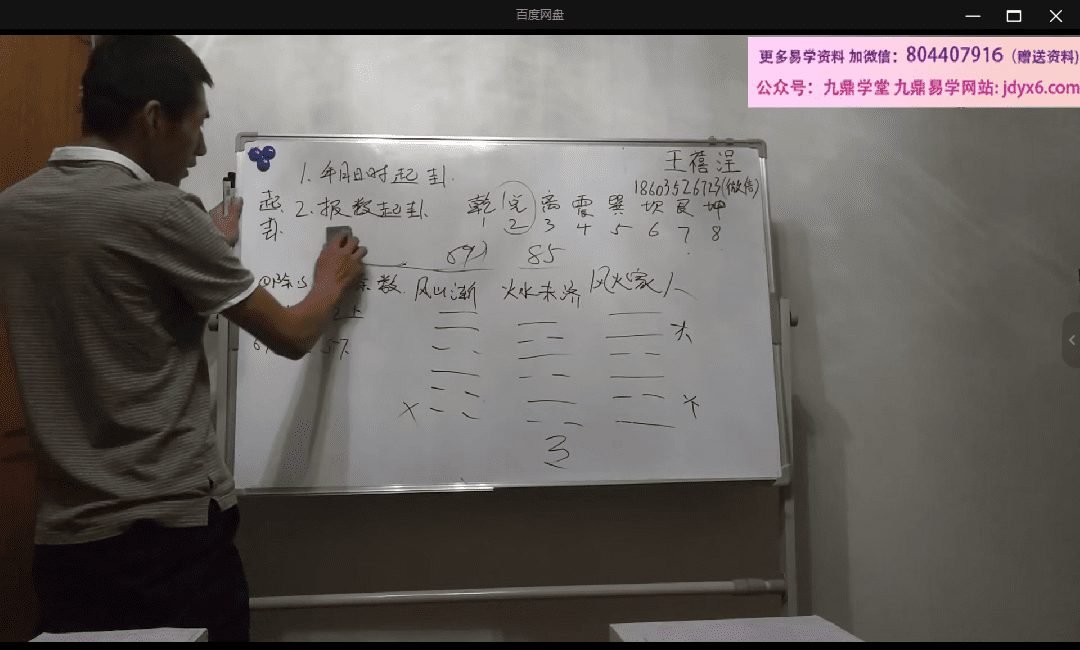 百度网盘
更多易学资料 加微信：804407916（赠送资料)
公众号：九鼎学堂 九鼎易学网站: jdyx6.com
王蓓浧
1. 年月日时起卦.
起卦
2. 报数起卦.
乾 兑 离 震 巽 坎 艮 坤
1 2 3 4 5 6 7 8
691 85
余数.
风山渐 火水未济 风火家人
3